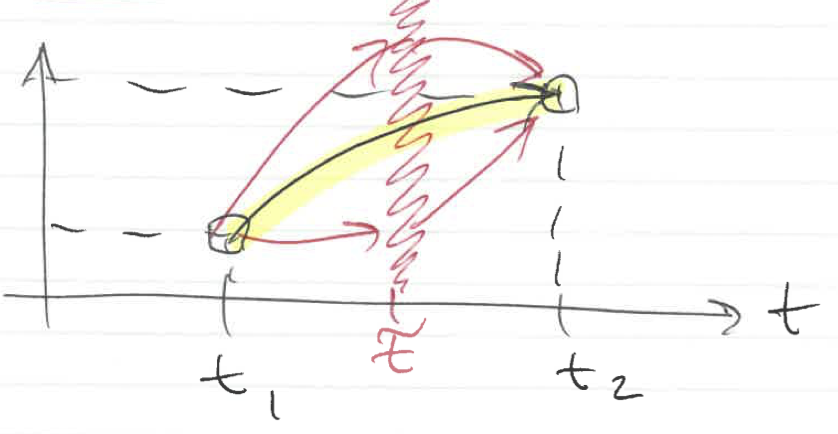 t
t₁ t₂